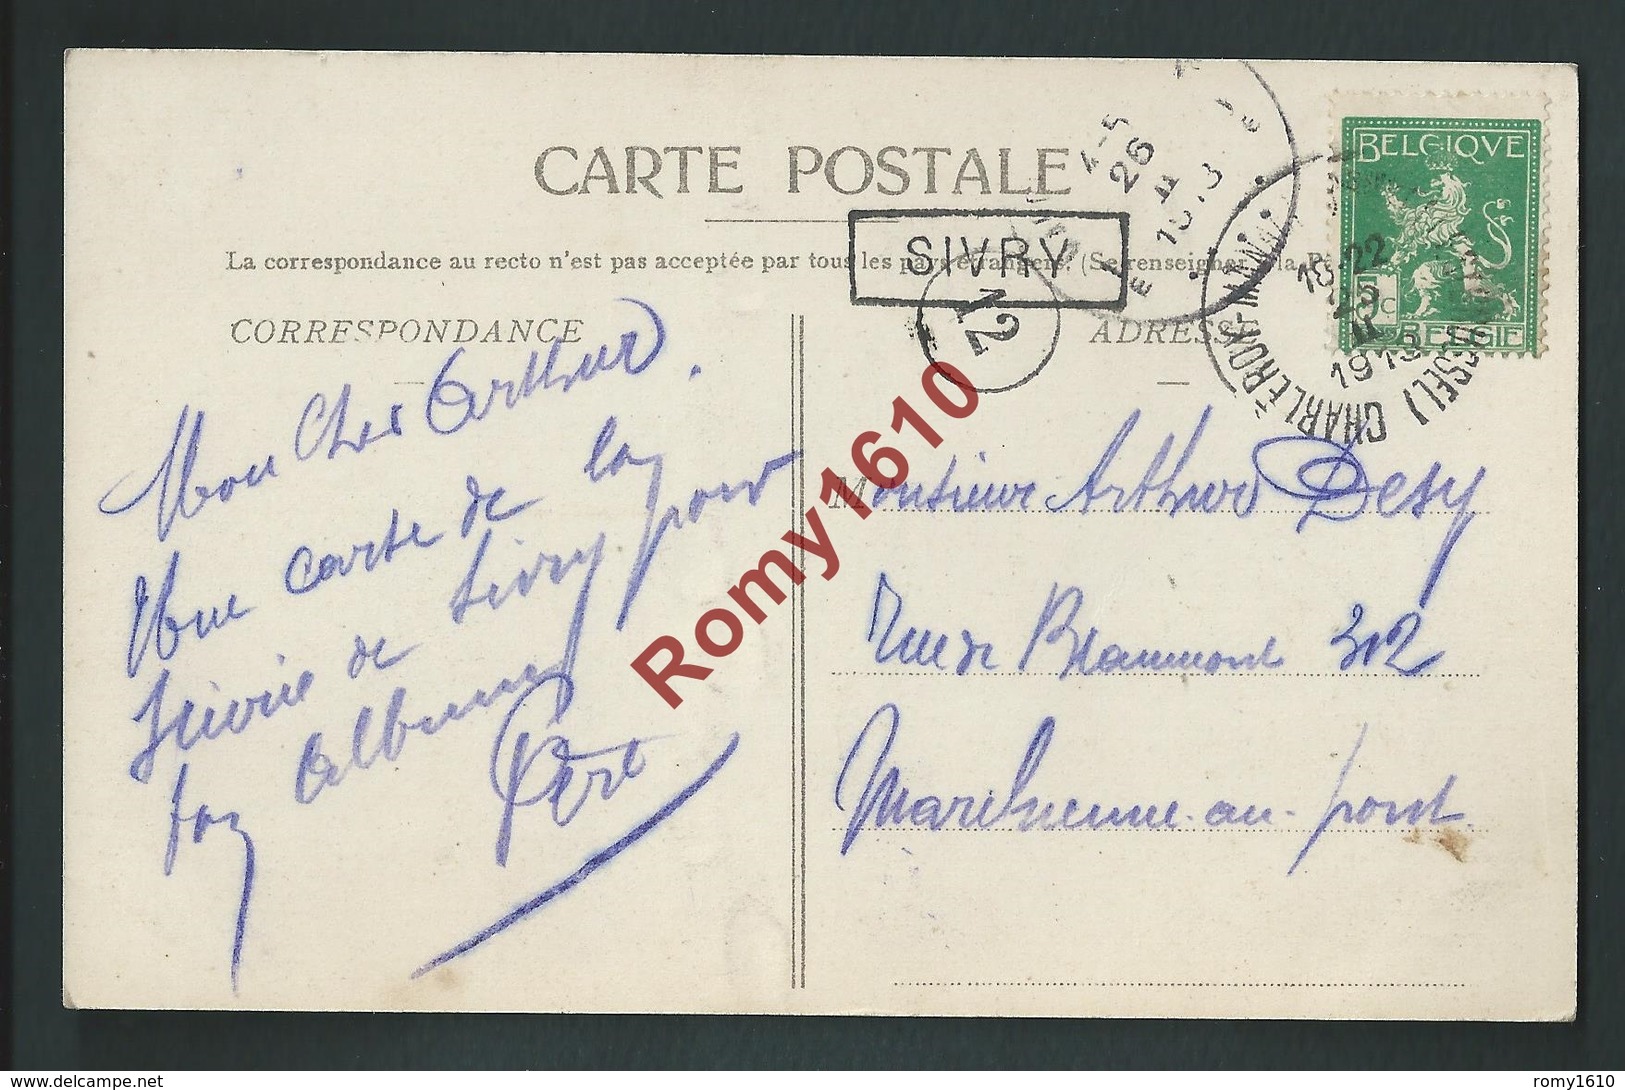 CARTE POSTALE
La correspondance au recto n'est pas acceptée par tous les pays étrangers. (Se renseigner à la
SIVRY
12
4-5
26
II
1913
BELGIQVE
5c
BELGIË
18-22
25
II
1913
CHARLEROY
CORRESPONDANCE
ADRESSE
Mon Cher Arthur.
Une carte de la
de Sivry pour
ton Album
Monsieur Arthur Desy
Rue de Beaumont 302
Marchienne-au-pont.
Romy1610
delcampe.net
romy1610